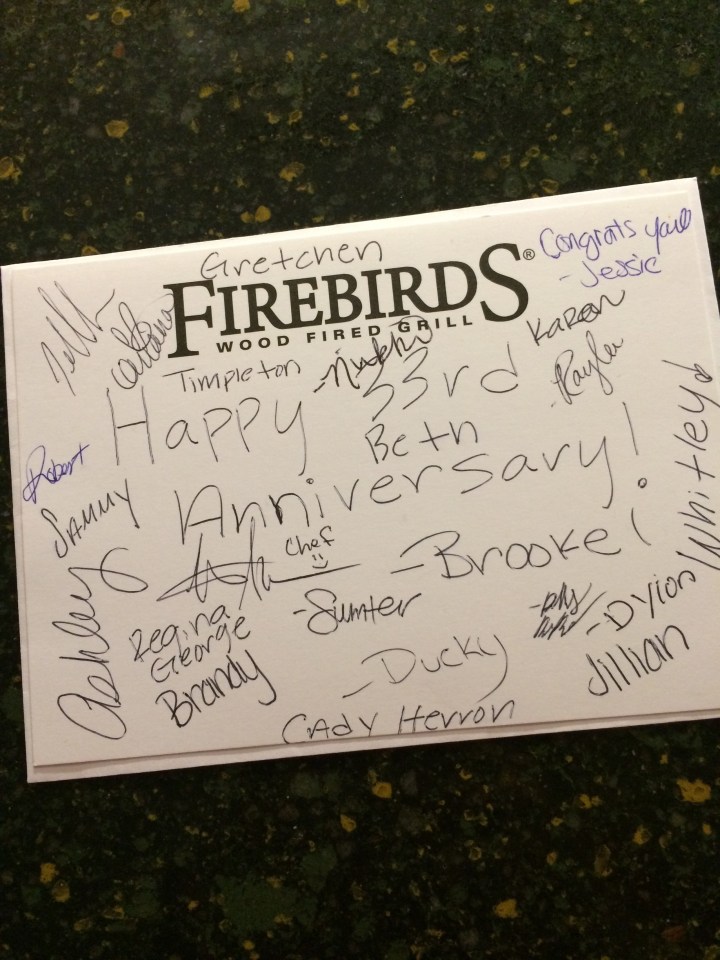 Gretchen
FIREBIRDS®
WOOD FIRED GRILL
Congrats yall
-Jessie
Karen
Timpleton
-Nikki
Kaylee
Happy 33rd
Beth
Anniversary!
Robert
SAMMY
Whitley
Chef
-Brooke!
Ashley
Regina
George
-Sumter
-Dylon
Brandy
-Ducky
Jillian
Cady Herron